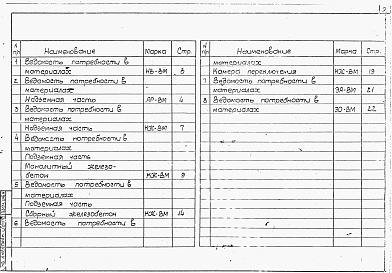 N п/п Наименование Марка Стр.
1 Ведомость потребности в
материалах КЖ-ВМ 3
2 Ведомость потребности в
материалах
Надземная часть АР-ВМ 4
3 Ведомость потребности в
материалах
Надземная часть КЖ-ВМ 7
4 Ведомость потребности в
материалах
Подземная часть
Монолитный железо-
бетон КЖ-ВМ 9
5 Ведомость потребности в
материалах
Подземная часть
Сборный железобетон КЖ-ВМ 14
6 Ведомость потребности в
N п/п Наименование Марка Стр.
материалах
Камера переключения КЖ-ВМ 19
7 Ведомость потребности в
материалах ЭА-ВМ 21
8 Ведомость потребности в
материалах ЭО-ВМ 22